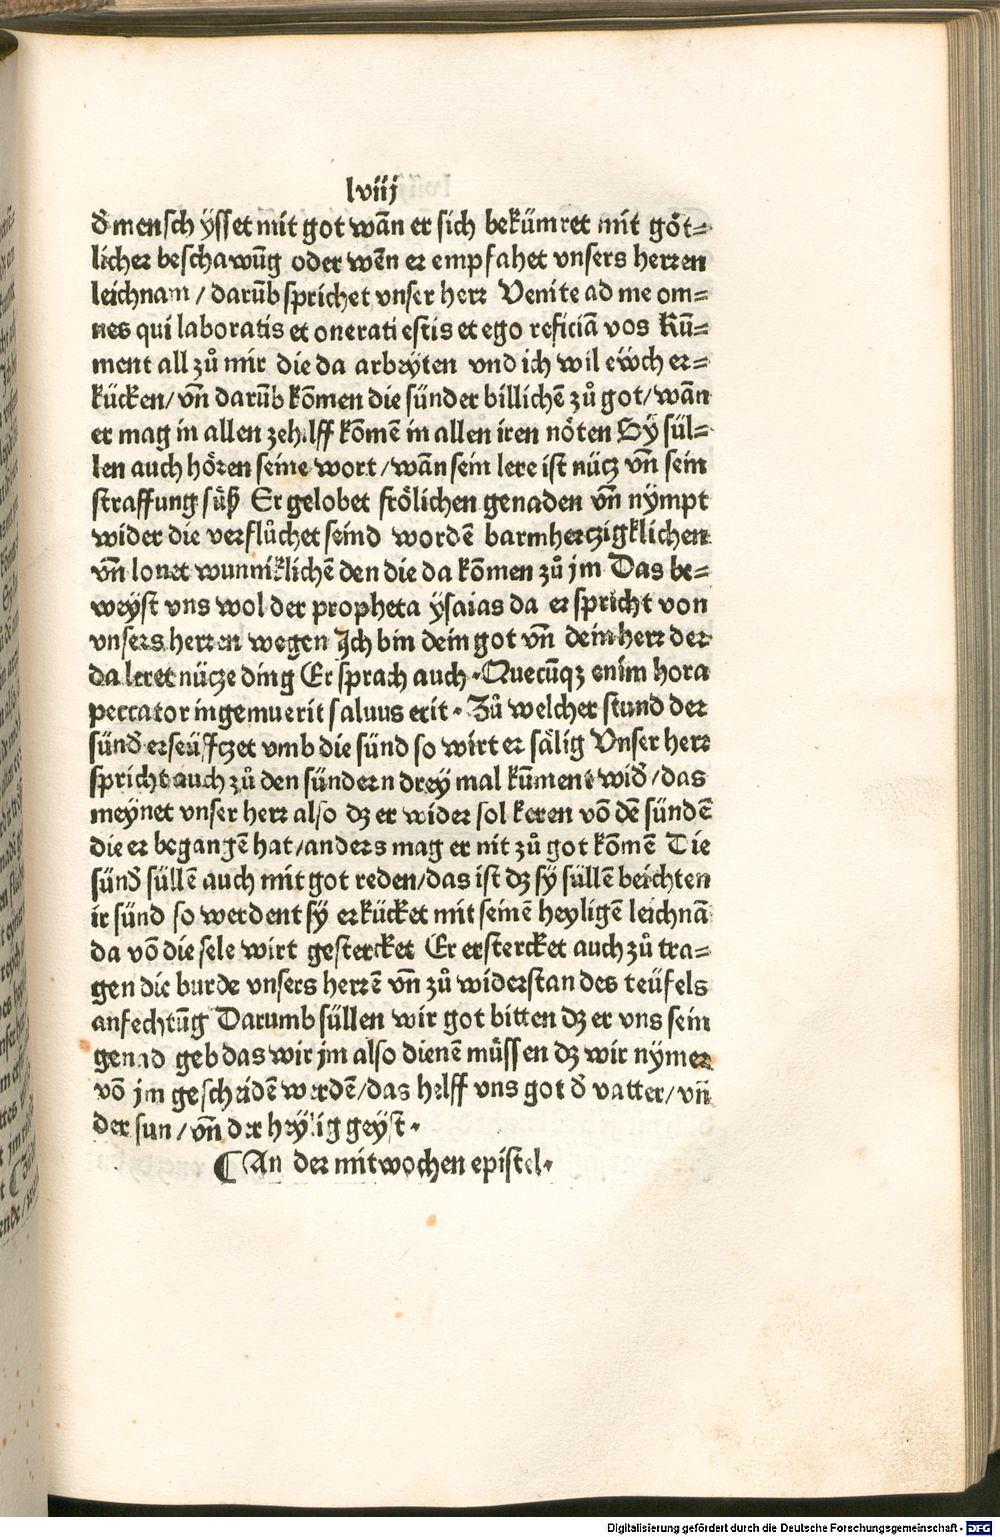 lviij
d̄ mensch ÿsset mit got wān er sich bekümret mit göt⸗
licher beschawūg oder wēn er empfahet vnsers herren
leichnam / darūb sprichet vnser herr Venite ad me om⸗
nes qui laboratis et onerati estis et ego reficiā vos Kū⸗
ment all zů mir die da arbeÿten vnd ich wil eẅch er⸗
kücken / vn̄ darūb kōmen die sünder billichē zů got / wān
er mag in allen zehilff kōmē in allen iren nöten Sÿ sül⸗
len auch hören seine wort / wān sein lere ist nücz vn̄ sein
straffung süß Er gelobet frölichen genaden vn̄ nÿmpt
wider die verflůchet seind wordē barmherczigklichen
vn̄ lonet wunniklichē den die da kōmen zů jm Das be⸗
weÿst vns wol der propheta ÿsaias da er spricht von
vnsers herren wegen Ich bin dein got vn̄ dein herr der
da leret nücze ding Er sprach auch · Quecūqȝ enim hora
peccator ingemuerit saluus erit · Zů welcher stund der
sünd̄ erseüfczet vmb die sünd so wirt er sälig Vnser herr
spricht auch zů den sündern dreÿ mal kūment wid̄ / das
meÿnet vnser herr also dȝ er wider sol keren vō dē sündē
die er begangē hat / anders mag er nit zů got kōmē Die
sünd̄ süllē auch mit got reden / das ist dȝ sÿ süllē beichten
ir sünd so werdent sÿ erkücket mit seinē heÿligē leichnā
da vō die sele wirt gestercket Er erstercket auch zů tra⸗
gen die burde vnsers herrē vn̄ zů widerstan des teüfels
anfechtūg Darumb süllen wir got bitten dȝ er vns sein
genad geb das wir jm also dienē müssen dȝ wir nÿmer
vō jm gescheidē werdē / das helff vns got d̄ vatter / vn̄
der sun / vn̄ der heÿlig geÿst ·
¶ An der mitwochen epistel ·
Digitalisierung gefördert durch die Deutsche Forschungsgemeinschaft - DFG